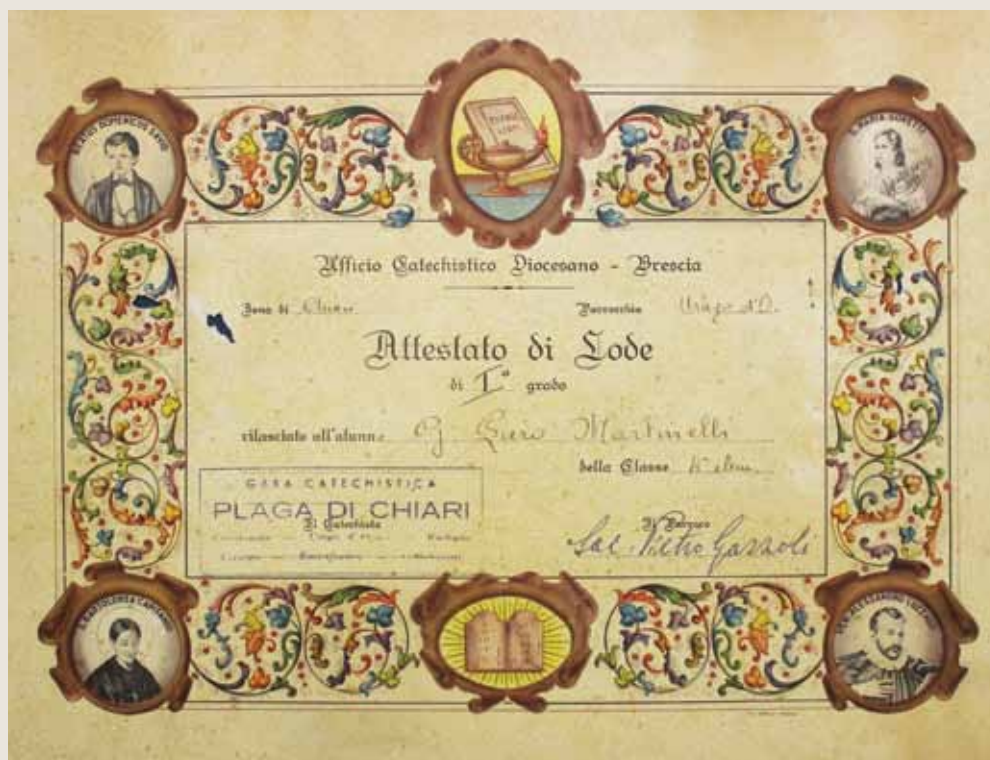 BEATUS DOMENICUS SAVIO
S. MARIA GORETTI
Ufficio Catechistico Diocesano - Brescia
Zona di Chiari Parrocchia Urago d'O.
Attestato di Lode
di I° grado
rilasciato all'alunno G. Piero Martinelli
della Classe 4ª elem.
GARA CATECHISTICA
PLAGA DI CHIARI
Il Catechista
Il Parroco
Sac. Pietro Gazzoli
S. BARTOLOMEA CAPITANIO
ALESSANDRO LUZZAGO